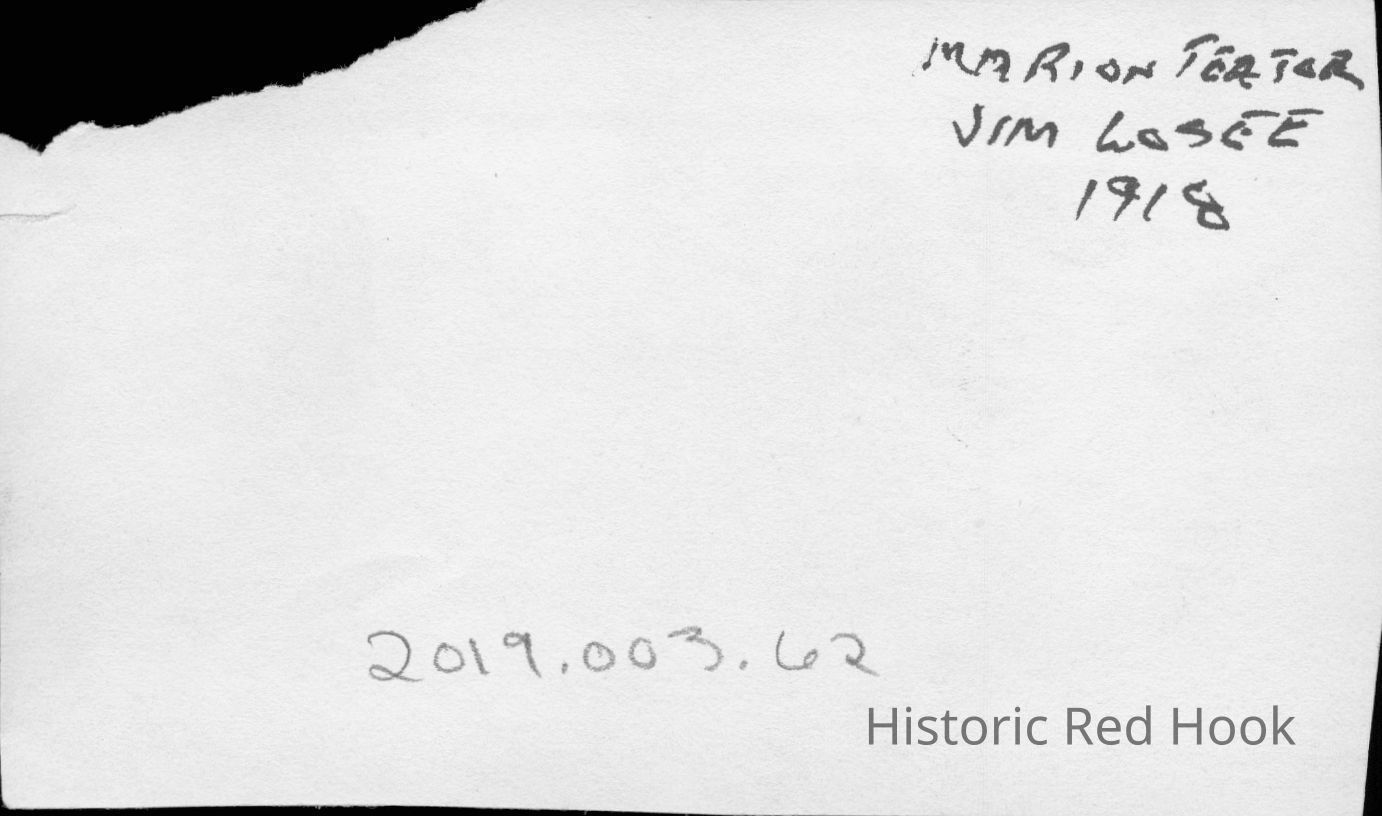 MARION TEATOR
JIM LOSEE
1918
2019.003.62
Historic Red Hook